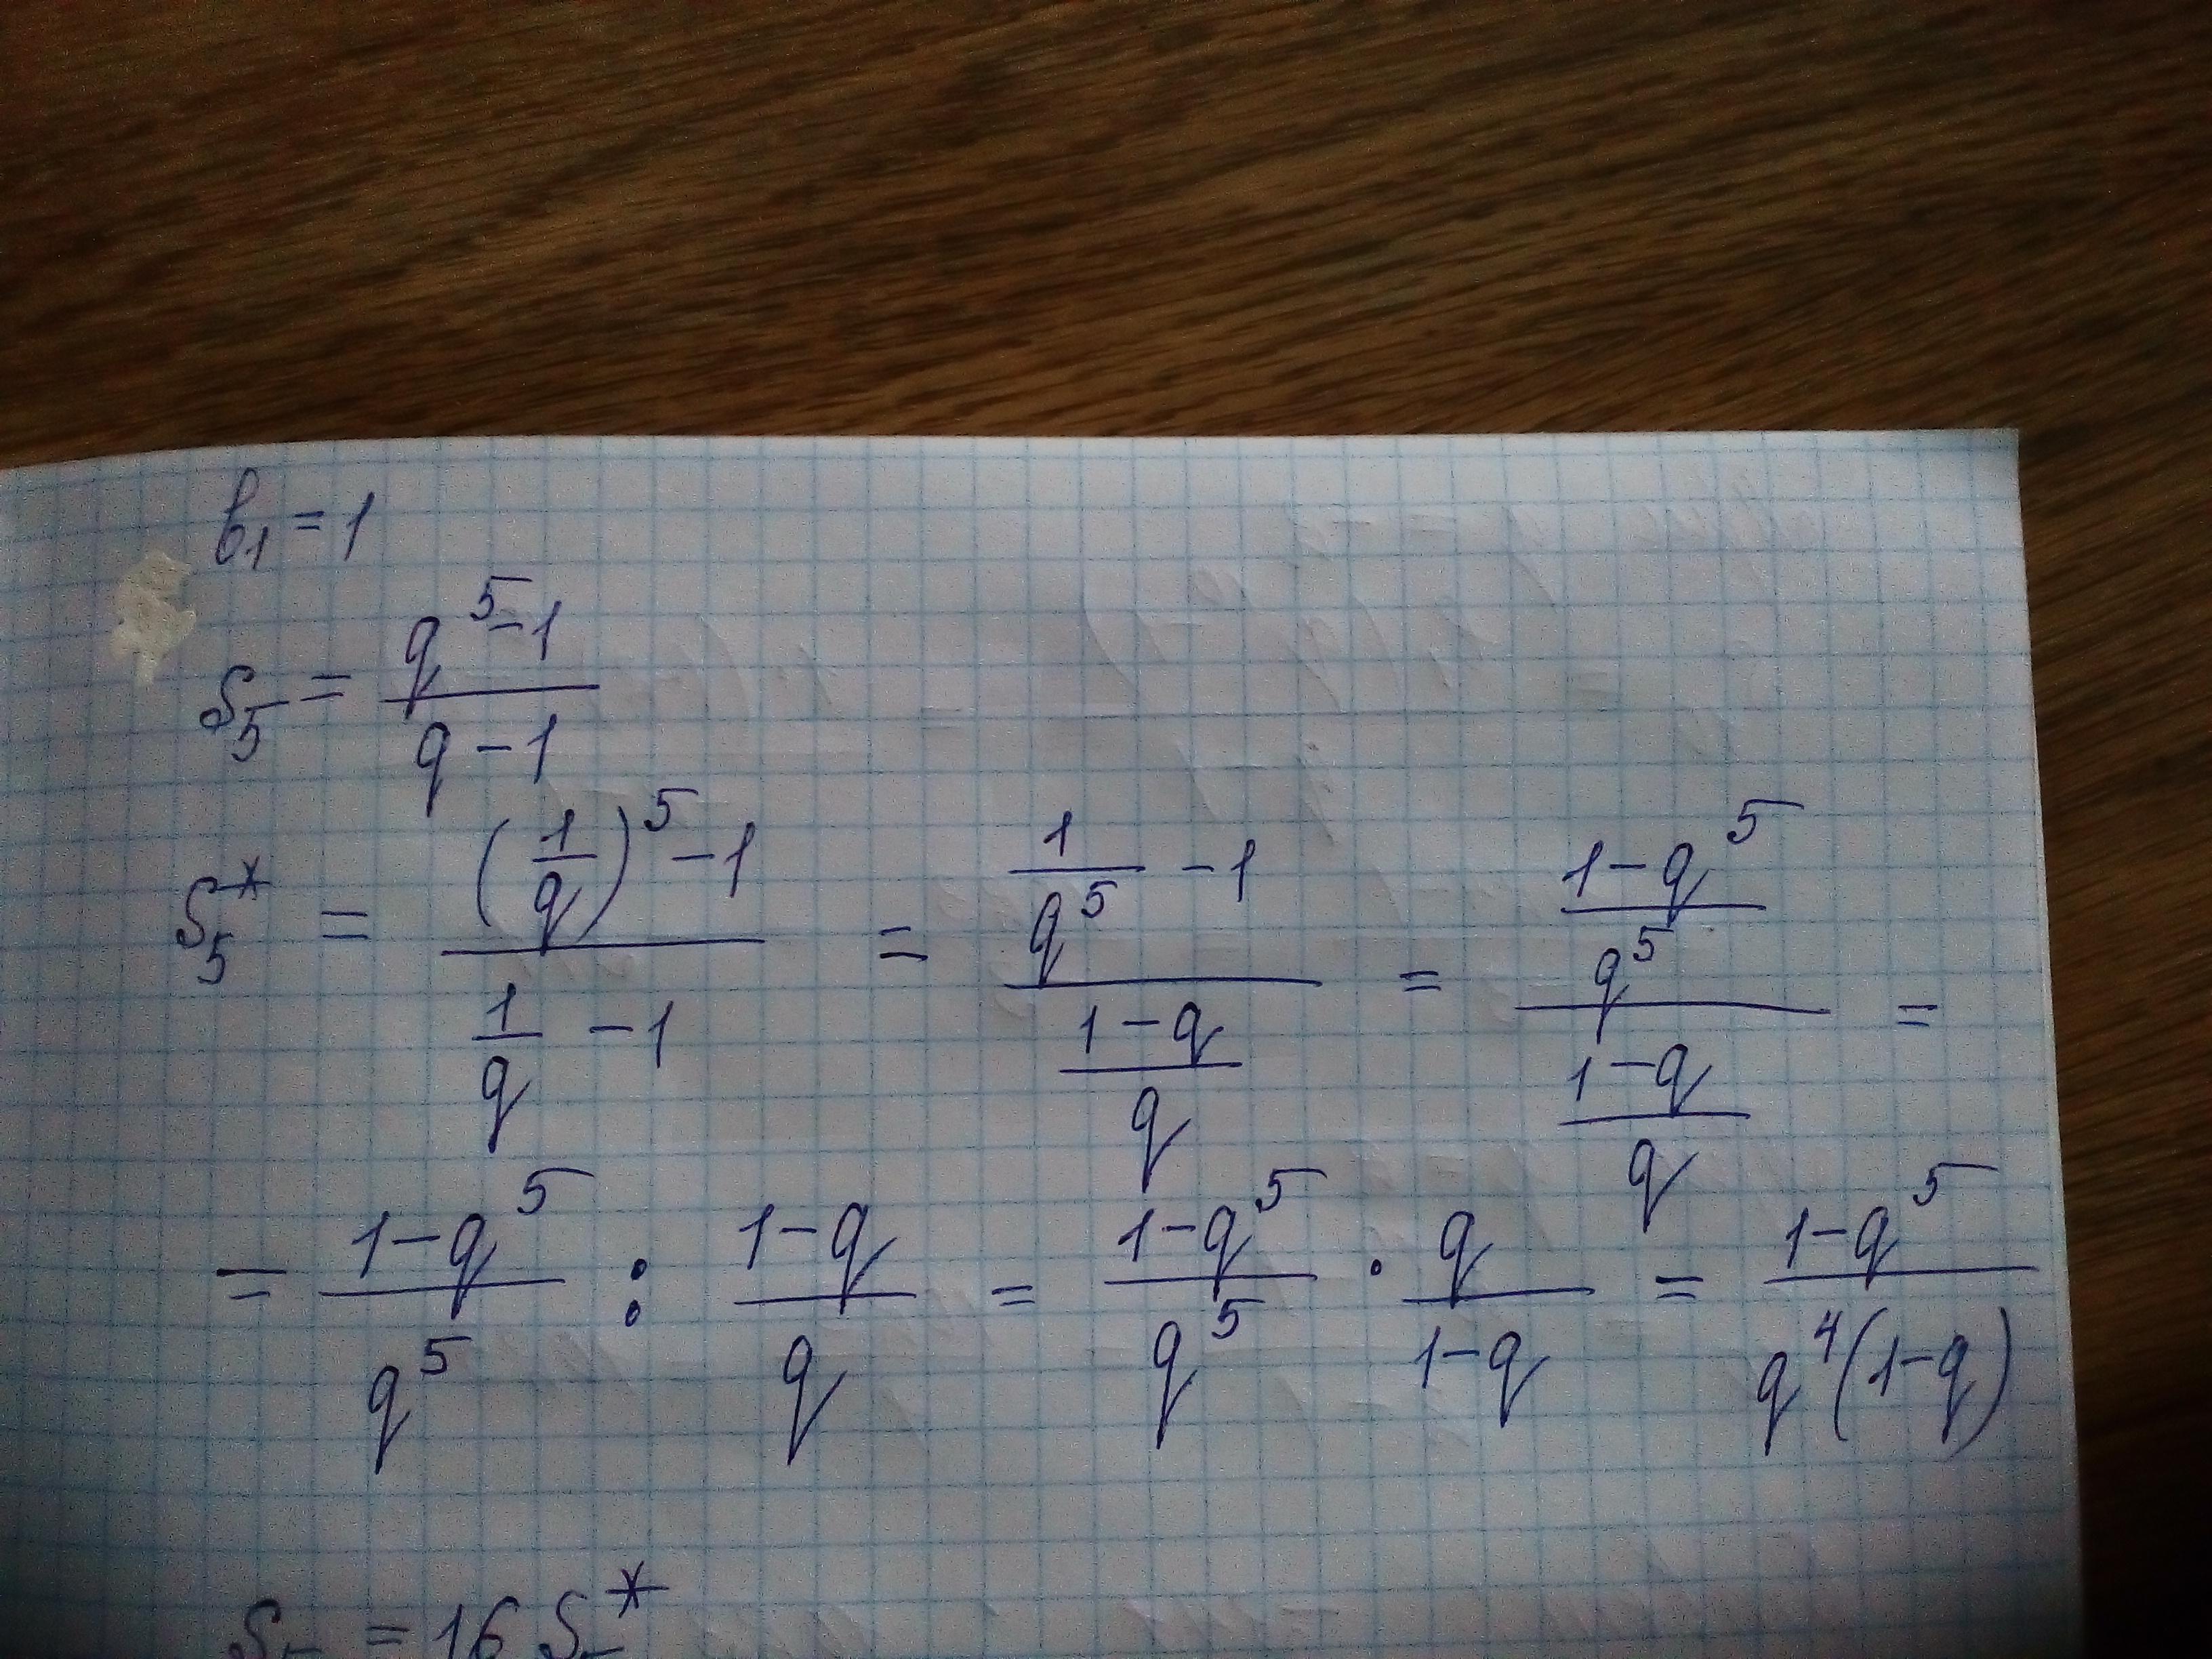 b₁ = 1
S₅ = (q⁵ - 1)/(q - 1)
S₅* = ((1/q)⁵ - 1)/(1/q - 1) = (1/q⁵ - 1)/((1 - q)/q) = ((1 - q⁵)/q⁵)/((1 - q)/q) =
= (1 - q⁵)/q⁵ : (1 - q)/q = (1 - q⁵)/q⁵ · q/(1 - q) = (1 - q⁵)/(q⁴(1 - q))
S₅ = 16 S₅*